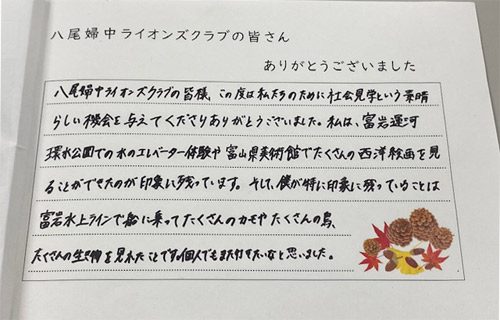 八尾婦中ライオンズクラブの皆さん
ありがとうございました
八尾婦中ライオンズクラブの皆様、この度は私たちのために社会見学という素晴
らしい機会を与えてくださりありがとうございました。私は、富岩運河
環水公園での水のエレベーター体験や富山県美術館でたくさんの西洋絵画を見
ることができたのが印象に残っています。そして、僕が特に印象に残っていることは
富岩水上ラインで船に乗ってたくさんのカモやたくさんの鳥、
たくさんの生き物を見れたことです。個人でもまた行きたいなと思いました。